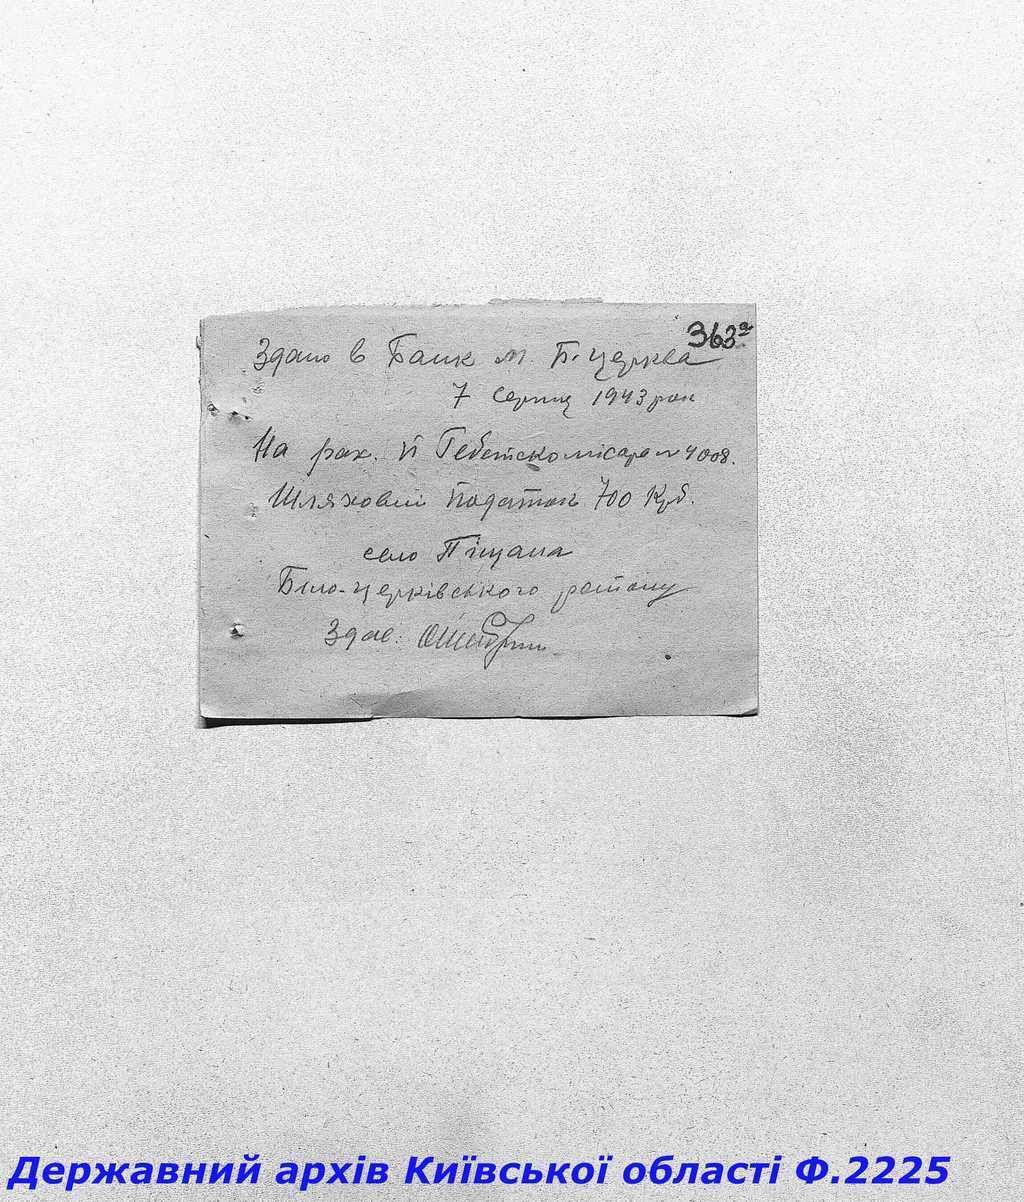 363а
Здано в Банк м Б-церква
7 Серпня 1943 рок
На рах. Гебетскомісара № 4008.
Шляховий податок 700 Крб.
село Піщана
Біло-церківського району
Здав:
Державний архів Київської області Ф.2225